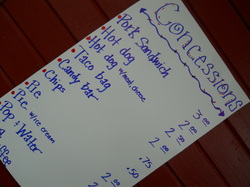 Concessions
Pork Sandwich 3.00
Hot dog 2.00
Hot dog w/meat, cheese 2.50
Taco bag 2.50
Candy Bar .75
Chips .50
Pie
Pie w/ice cream
Pop & Water